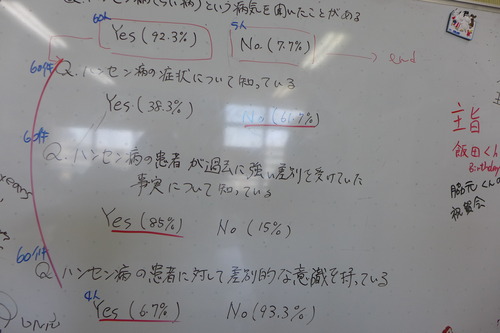 Q.ハンセン病(らい病)という病気を聞いたことがある
60人
5人
Yes(92.3%)
No(7.7%)
end
60件
Q.ハンセン病の症状について知っている
Yes(38.3%)
No(61.7%)
60件
Q.ハンセン病の患者が過去に強い差別を受けていた
事実について知っている
Yes(85%)
No(15%)
60件
Q ハンセン病の患者に対して差別的な意識を持っている
4人
Yes(6.7%)
No(93.3%)
主旨
飯田くん
Birthday
脇元くんの
祝賀会